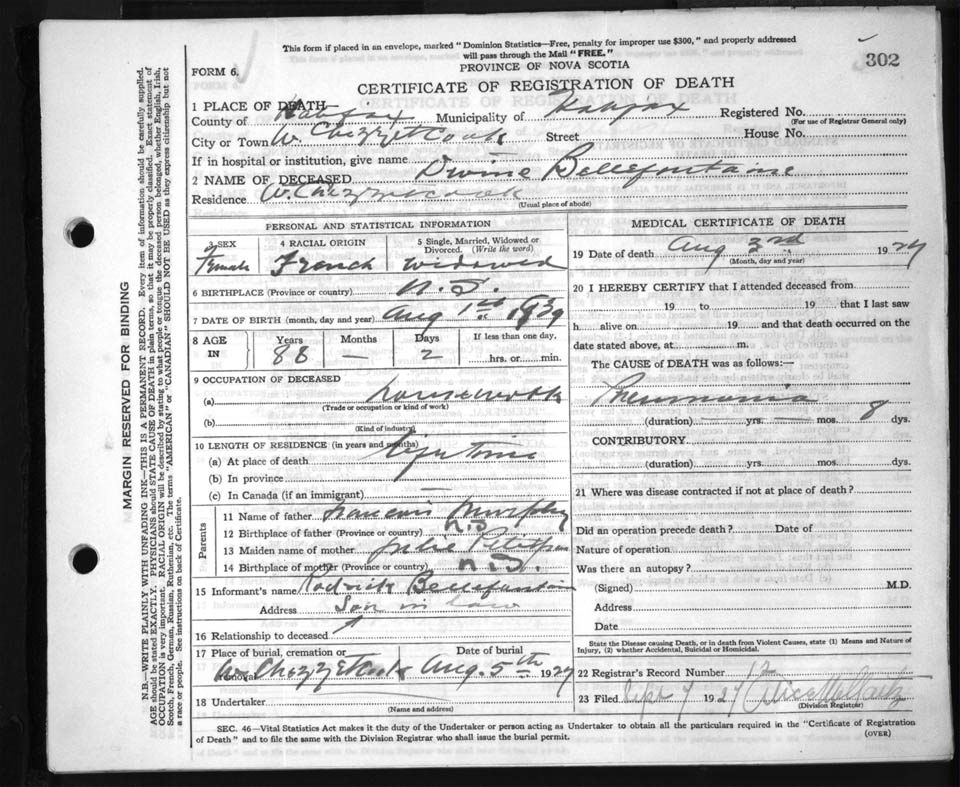 This form if placed in an envelope, marked "Dominion Statistics—Free, penalty for improper use $300," and properly addressed
will pass through the Mail "FREE."
302
FORM 6.
PROVINCE OF NOVA SCOTIA
CERTIFICATE OF REGISTRATION OF DEATH
1 PLACE OF DEATH—
County of Halifax Municipality of Halifax Registered No.
(For use of Registrar General only)
City or Town W. Chezzetcook Street House No.
If in hospital or institution, give name
2 NAME OF DECEASED Divine Bellefontaine
Residence W. Chezzetcook
(Usual place of abode)
PERSONAL AND STATISTICAL INFORMATION
3 SEX 4 RACIAL ORIGIN 5 Single, Married, Widowed or Divorced. (Write the word)
Female French Widowed
6 BIRTHPLACE (Province or country) N.S.
7 DATE OF BIRTH (month, day and year) Aug 1st
8 AGE IN Years Months Days If less than one day,
88 — 2 hrs. or min.
9 OCCUPATION OF DECEASED
(a) housework
(Trade or occupation or kind of work)
(b)
(Kind of industry)
10 LENGTH OF RESIDENCE (in years and months)
(a) At place of death Life time
(b) In province
(c) In Canada (if an immigrant)
Parents
11 Name of father Francois Murphy
12 Birthplace of father (Province or country) N.S
13 Maiden name of mother Julie
14 Birthplace of mother (Province or country) N.S.
15 Informant's name Rodrick Bellefontaine
Address Son in law
16 Relationship to deceased
17 Place of burial, cremation or removal Date of burial
W. Chezzetcook Aug. 5th 1927
18 Undertaker
(Name and address)
MEDICAL CERTIFICATE OF DEATH
19 Date of death Aug 3rd 1927
(Month, day and year)
20 I HEREBY CERTIFY that I attended deceased from
19 to 19 that I last saw
h alive on 19 and that death occurred on the
date stated above, at m.
The CAUSE of DEATH was as follows:—
Pneumonia
(duration) yrs. mos. 8 dys.
CONTRIBUTORY
(duration) yrs. mos. dys.
21 Where was disease contracted if not at place of death?
Did an operation precede death? Date of
Nature of operation
Was there an autopsy?
(Signed) M.D.
Address
Date
State the Disease causing Death, or in death from Violent Causes, state (1) Means and Nature of
Injury, (2) whether Accidental, Suicidal or Homicidal.
22 Registrar's Record Number 12
23 Filed Sept 7 1927
(Division Registrar)
SEC. 46—Vital Statistics Act makes it the duty of the Undertaker or person acting as Undertaker to obtain all the particulars required in the "Certificate of Registration
of Death" and to file the same with the Division Registrar who shall issue the burial permit.
(OVER)
MARGIN RESERVED FOR BINDING
N.B.—WRITE PLAINLY WITH UNFADING INK—THIS IS A PERMANENT RECORD. Every item of information should be carefully supplied.
AGE should be stated EXACTLY. PHYSICIANS should STATE CAUSE OF DEATH in plain terms, so that it may be properly classified. Exact statement of
OCCUPATION is very important. RACIAL ORIGIN will be described by stating to what people or tongue the deceased person belonged, whether English, Irish,
Scotch, French, German, Russian, Ruthenian, etc. The terms "AMERICAN" or "CANADIAN" SHOULD NOT BE USED as they express citizenship but not
a race or people. See instructions on back of Certificate.